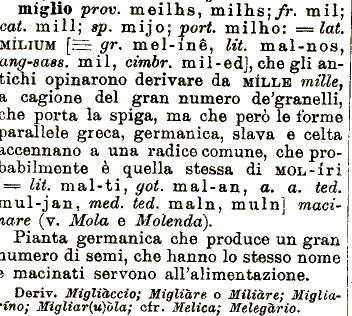 miglio prov. meilhs, milhs; fr. mil;
cat. mill; sp. mijo; port. milho: = lat.
MÍLIUM [≡ gr. mel-inê, lit. mal-nos,
ang-sass. mil, cimbr. mil-ed], che gli an-
tichi opinarono derivare da MÍLLE mille,
a cagione del gran numero de'granelli,
che porta la spiga, ma che però le forme
parallele greca, germanica, slava e celta
accennano a una radice comune, che pro-
babilmente è quella stessa di MOL-íri
[= lit. mal-ti, got. mal-an, a. a. ted.
mul-jan, med. ted. maln, muln] maci-
nare (v. Mola e Molenda).
Pianta germanica che produce un gran
numero di semi, che hanno lo stesso nome
e macinati servono all'alimentazione.
Deriv. Migliàccio; Migliàre o Miliàre; Miglia-
ríno; Migliar(u)òla; cfr. Melica; Melegàrio.